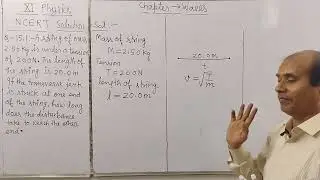 XI Physics
NCERT Solution
Q-15.1:- A string of mass
2.50kg is under a tension
of 200N. The length of
the string is 20.0m
If the transverse jerk
is struck at one end
of the string, how long
does the disturbance
take to reach the other
end.
Chapter→Waves
Sol:-
Mass of string
M=2.50kg
Tension
T=200N
length of string
l=20.0m
20.0m
t
v=√T/m